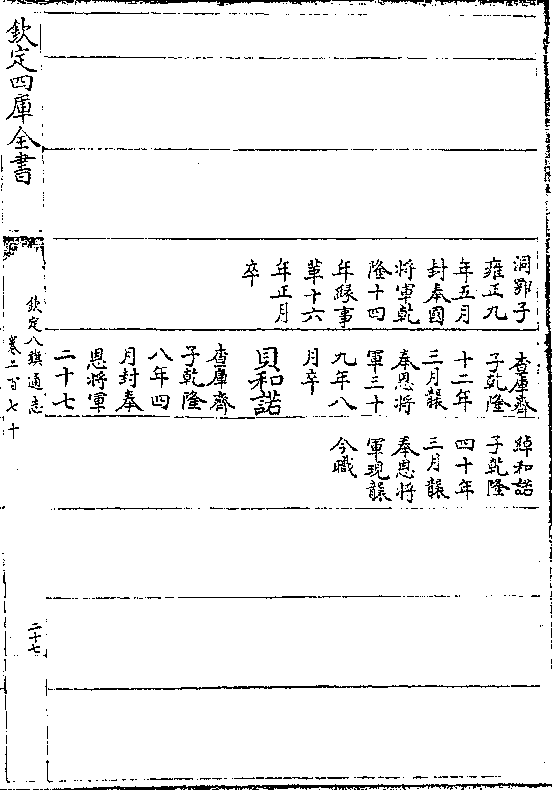 洞鄂子
雍正九
年五月
封奉國
将軍乾
隆十四
年緣事
革十六
年正月
卒
查庫齊
子乾隆
十二年
三月襲
奉恩将
軍三十
九年八
月卒
貝和諾
查庫齊
子乾隆
八年四
月封奉
恩將軍
二十七
綽和諾
子乾隆
四十年
三月襲
奉恩将
軍現襲
今職
欽定四庫全書
欽定八旗通志
卷二百七十
二十七